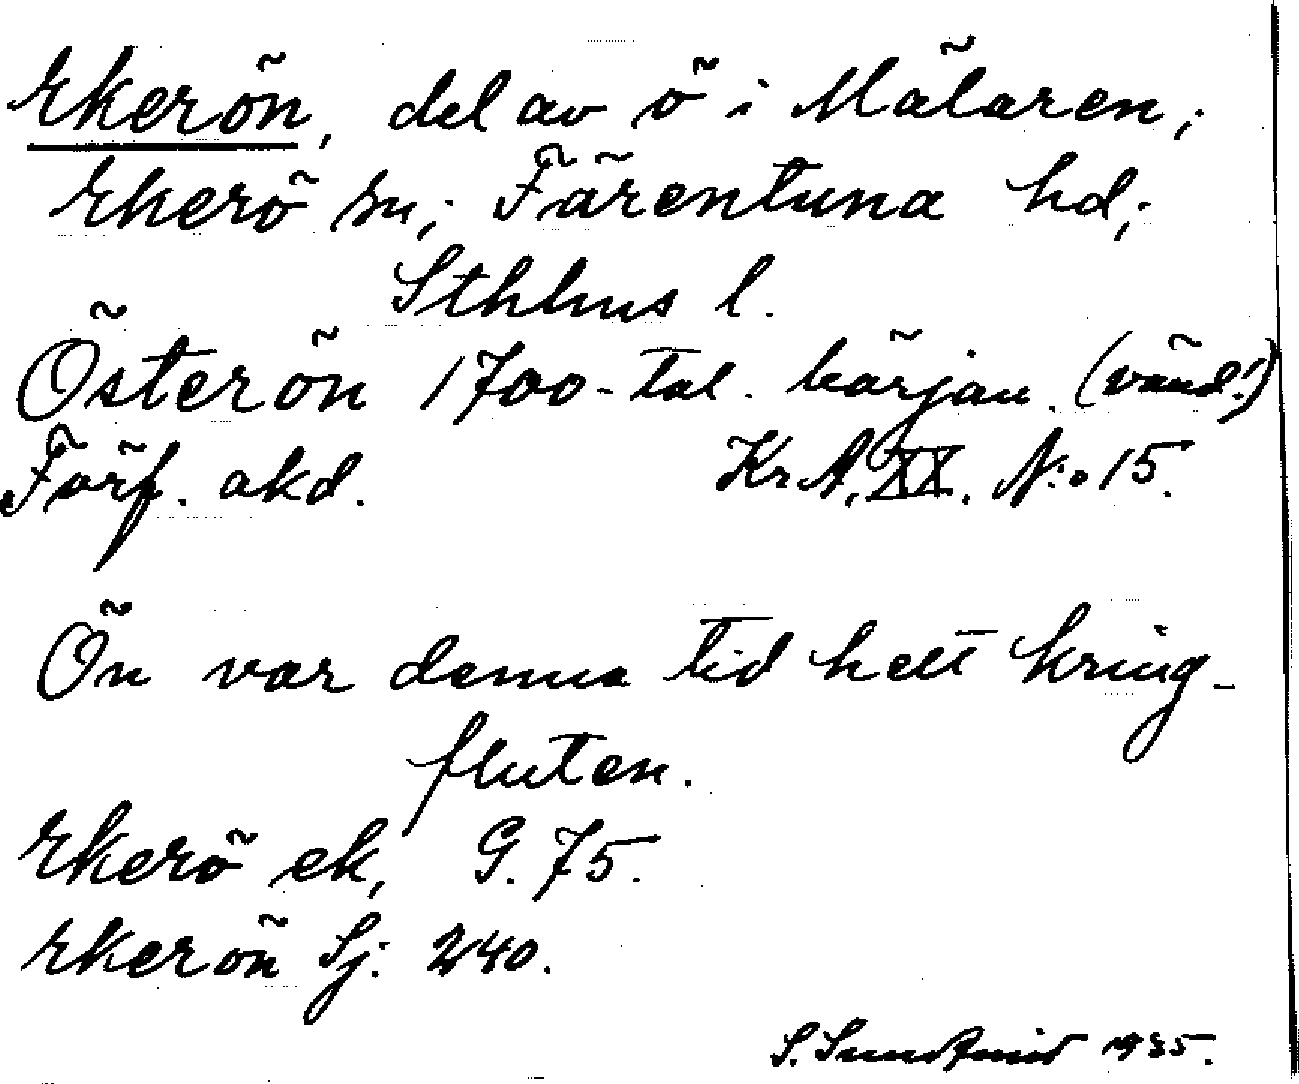 Ekerön, del av ö i Mälaren;
Ekerö sn; Färentuna hd;
Sthlms l.
Österön 1700-tal. början. (vänd!)
Förf. akd. Kr.A. XX. N:o 15.
Ön var denna tid helt kring-
fluten.
Ekerö ek, G. 75.
Ekerön Sj: 240.
S. Sundqvist 1935.